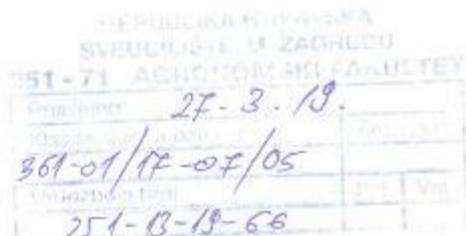 REPUBLIKA HRVATSKA
SVEUČILIŠTE U ZAGREBU
251-71 AGRONOMSKI FAKULTET
Primljeno: 27-3-19.
Klasifikacijska oznaka
361-01/17-07/05
Urudžbeni broj Pril. Vrij.
251-13-19-66